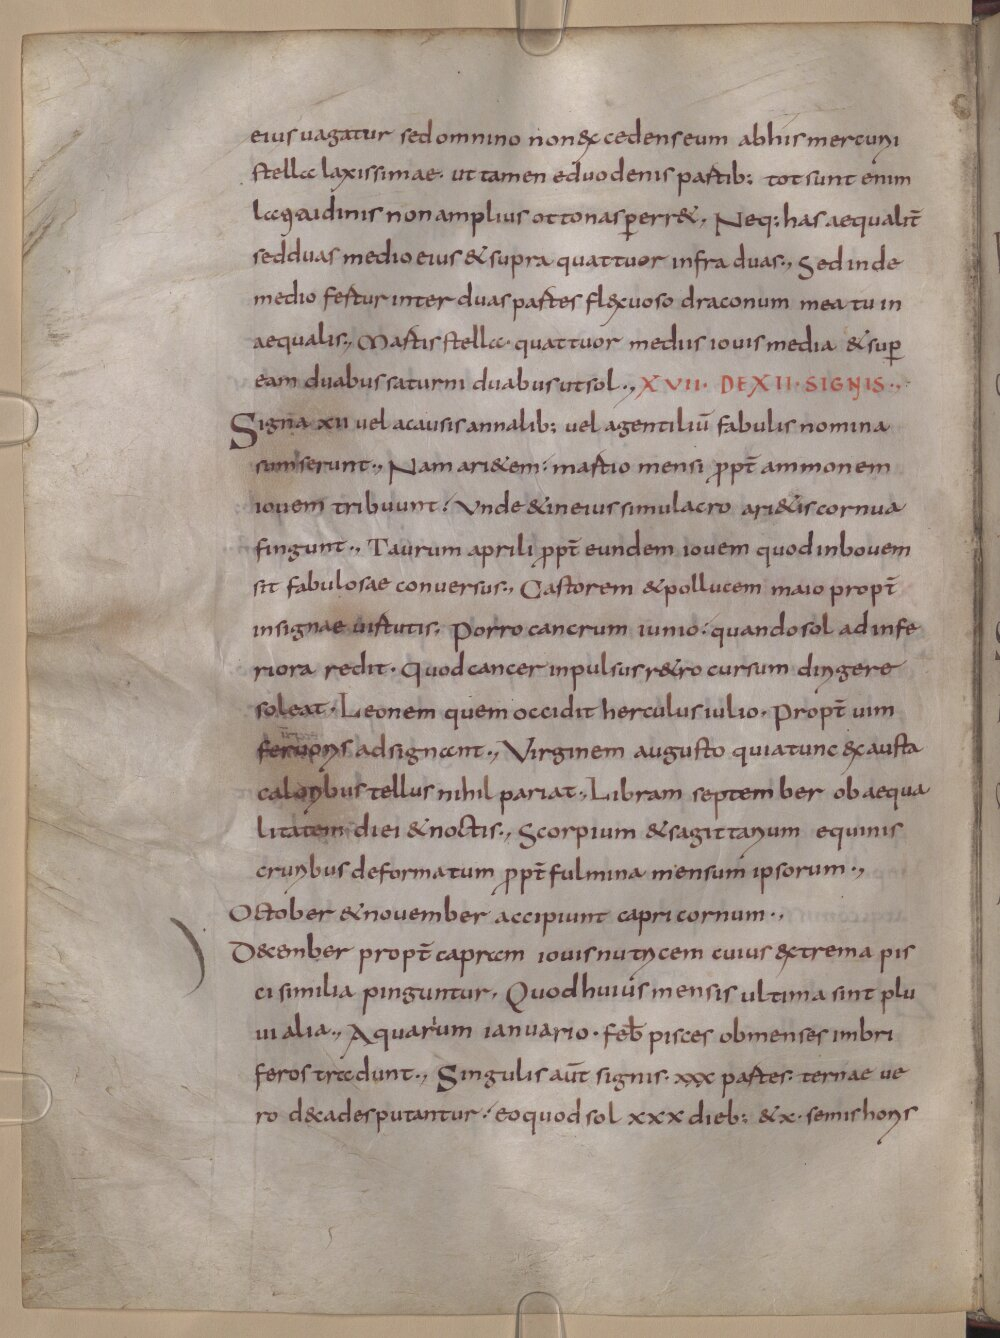 eius uagatur sed omnino non excedens eum ab his mercurii
stellae laxissimae. ut tamen e duodenis partib; tot sunt enim
latitudinis non amplius octonas ꝑerr&. Neq; has aequalit̄
sed duas medio eius & supra quattuor infra duas., Sed inde
medio fertur inter duas partes flexuoso draconum meatu in
aequalis., Martis stella. quattuor mediis iouis media & suꝑ
eam duabus saturni duabus ut sol., XVII. DE XII. SIGNIS.,
Signa xii uel a causis annalib; uel a gentiliū fabulis nomina
sumserunt., Nam ari&em: martio mensi ꝓpt̄ ammonem
iouem tribuunt: Vnde & in eius simulacro ari&is cornua
fingunt., Taurum aprili ꝓpt̄ eundem iouem quod in bouem
sit fabulosae conuersus., Castorem & pollucem maio propt̄
insignae uirtutis. Porro cancrum iunio: quando sol ad infe
riora redit. Quod cancer inpulsus r&ro cursum dirigere
soleat. Leonem quem occidit herculus iulio. Propt̄ uim
feruoris adsignant., Virginem augusto quia tunc exausta
caloribus tellus nihil pariat., Libram september ob aequa
litatem diei & noctis., Scorpium & sagittarium equinis
cruribus deformatum ꝓpt̄ fulmina mensum ipsorum.,
October & nouember accipiunt capricornum.,
D&cember propt̄ capram iouis nutricem cuius extrema pis
ci similia pinguntur. Quod huius mensis ultima sint plu
uialia., Aquarium ianuario. feb̄ pisces ob menses imbri
feros tradunt., Singulis aūt signis. xxx partes. ternae ue
ro d&cades putantur: eo quod sol xxx dieb; & x. semis horis